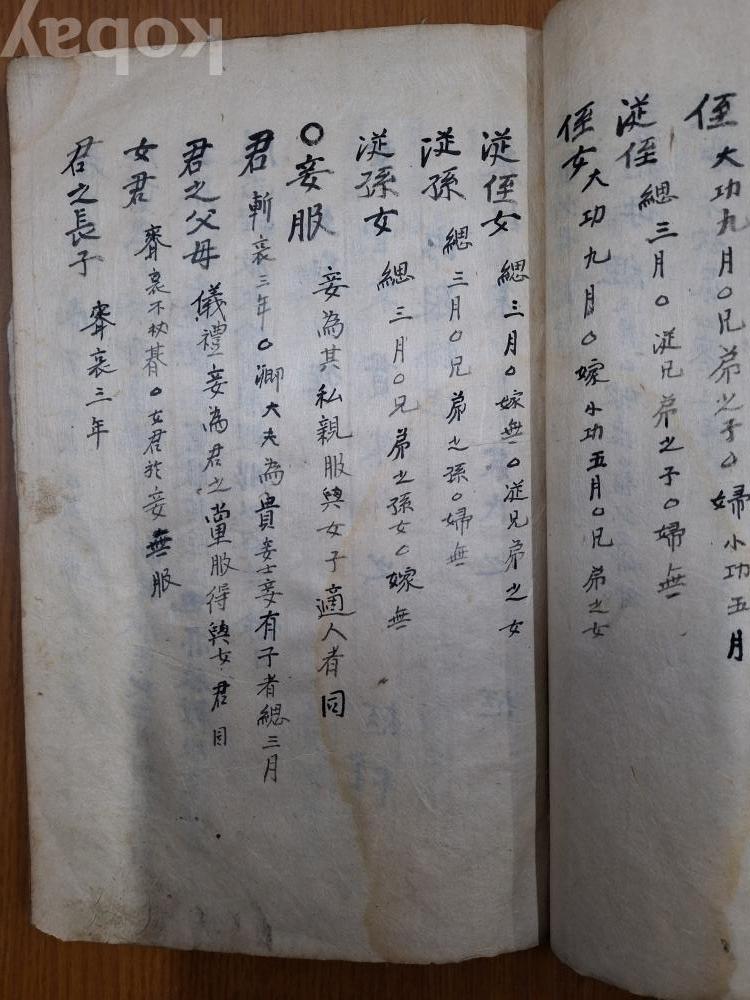 侄 大功九月〇兄弟之子〇婦小功五月
從侄 緦三月〇從兄弟之子〇婦無
侄女 大功九月〇嫁小功五月〇兄弟之女
從侄女 緦三月〇嫁無〇從兄弟之女
從孫 緦三月〇兄弟之孫〇婦無
從孫女 緦三月〇兄弟之孫女〇嫁無
〇妾服 妾為其私親服與女子適人者同
君 斬衰三年〇卿大夫為貴妾士妾有子者緦三月
君之父母 儀禮妾為君之黨服得與女君同
女君 齊衰不杖朞〇女君於妾無服
君之長子 齊衰三年
kobay